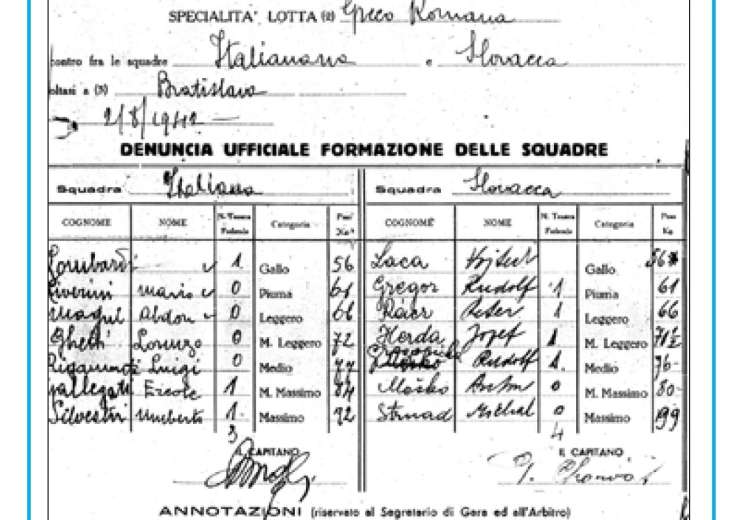 SPECIALITA' LOTTA (2) Greco Romana
contro fra le squadre Italianana e Slovacca
oltasi a (3) Bratislava
2/8/1942
DENUNCIA UFFICIALE FORMAZIONE DELLE SQUADRE
Squadra Italiana Squadra Slovacca
COGNOME NOME N. Tessera Federale Categoria Peso Kg. COGNOME NOME N. Tessera Federale Categoria Peso Kg
Lombardi 1 Gallo 56 Laca Vojtech Gallo 56
Liverini mario 0 Piuma 61 Gregor Rudolf 1 Piuma 61
Magul Abdon 0 Leggero 66 Rácz Peter 1 Leggero 66
Ghetti Lorenzo 0 M. Leggero 72 Herda Jozef 1 M. Leggero
Rigamonti Luigi 0 Medio 77 Rudolf 1. Medio 76
allegati Ercole 1 M. Massimo 84 Moško M. Massimo 80
Silvestri Umberto 1. Massimo 92 Strnad Michal 0 Massimo 99
3 4
IL CAPITANO IL CAPITANO
ANNOTAZIONI (riservato al Segretario di Gara ed all'Arbitro)